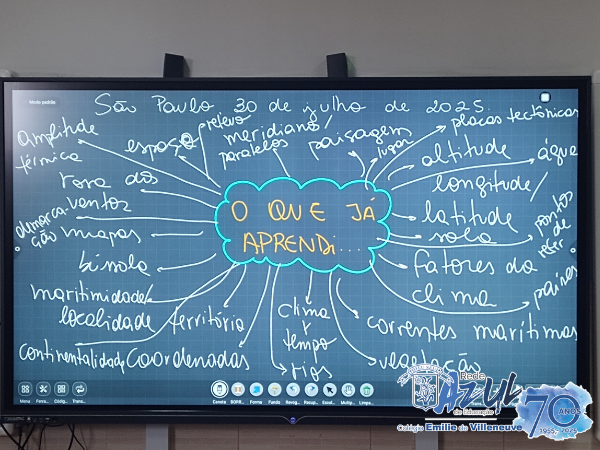 Modo padrão
São Paulo 30 de julho de 2025.
amplitude
térmica
espaço
relevo
meridiano/
paralelos
paisagem
lugar
placas tectônicas
altitude
água
rosa dos
ventos
longitude/
latitude
demarca-
ção
mapas
O QUE JÁ
APRENDI...
solo
pontos
de
refer
bússola
fatores do
clima
países
maritimidade/
localidade
território
clima
x
tempo
correntes marítimas
continentalidade
coordenadas
rios
vegetação
Menu
Ferra...
Códig...
Trans...
Caneta
BORR...
Forma
Fundo
Revog...
Recup...
Excel...
Multip...
Limpa...
Rede
AZUL
de Educação
Colégio Emilie de Villeneuve
70 ANOS
1955 - 2025